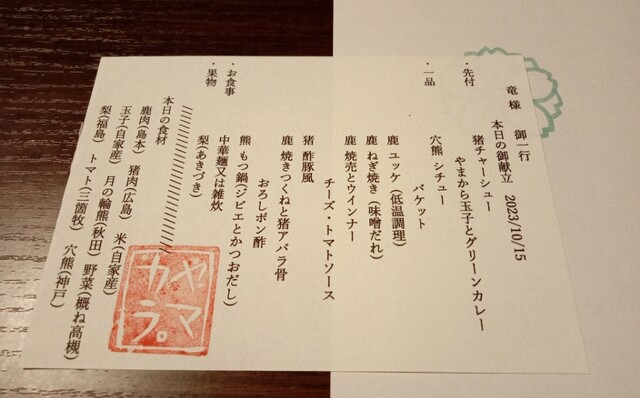 竜様 御一行
本日の御献立 2023/10/15
・先付
猪チャーシュー
やまから玉子とグリーンカレー
・一品
穴熊 シチュー
バケット
鹿 ユッケ(低温調理)
鹿 ねぎ焼き(味噌だれ)
鹿 焼売とウインナー
チーズ・トマトソース
猪 酢豚風
鹿 焼きつくねと猪アバラ骨
おろしポン酢
熊 もつ鍋(ジビエとかつおだし)
・お食事
中華麺又は雑炊
・果物
梨(あきづき)
本日の食材
鹿肉(島本) 猪肉(広島) 米(自家産)
玉子(自家産) 月の輪熊(秋田) 野菜(概ね高槻)
梨(福島) トマト(三箇牧) 穴熊(神戸)
ヤマカラ。